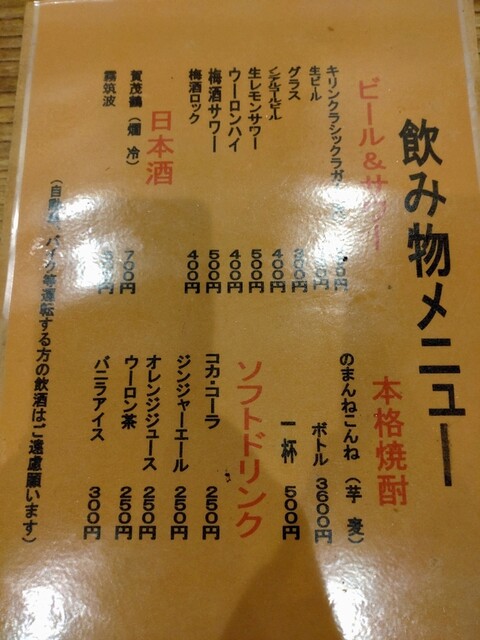 飲み物メニュー
ビール&サワー
キリンクラシックラガー
生ビール
グラス
ノンアルコールビール 400円
生レモンサワー 500円
ウーロンハイ 400円
梅酒サワー 500円
梅酒ロック 400円
日本酒
賀茂鶴(燗 冷) 700円
霧筑波
本格焼酎
のまんねごんね(芋 麦)
ボトル 3600円
一杯 500円
ソフトドリンク
コカ・コーラ 250円
ジンジャーエール 250円
オレンジジュース 250円
ウーロン茶 250円
バニラアイス 300円
(自動車、バイク等運転する方の飲酒はご遠慮願います)